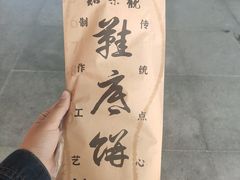 鞋底饼
传统点心
制作工艺